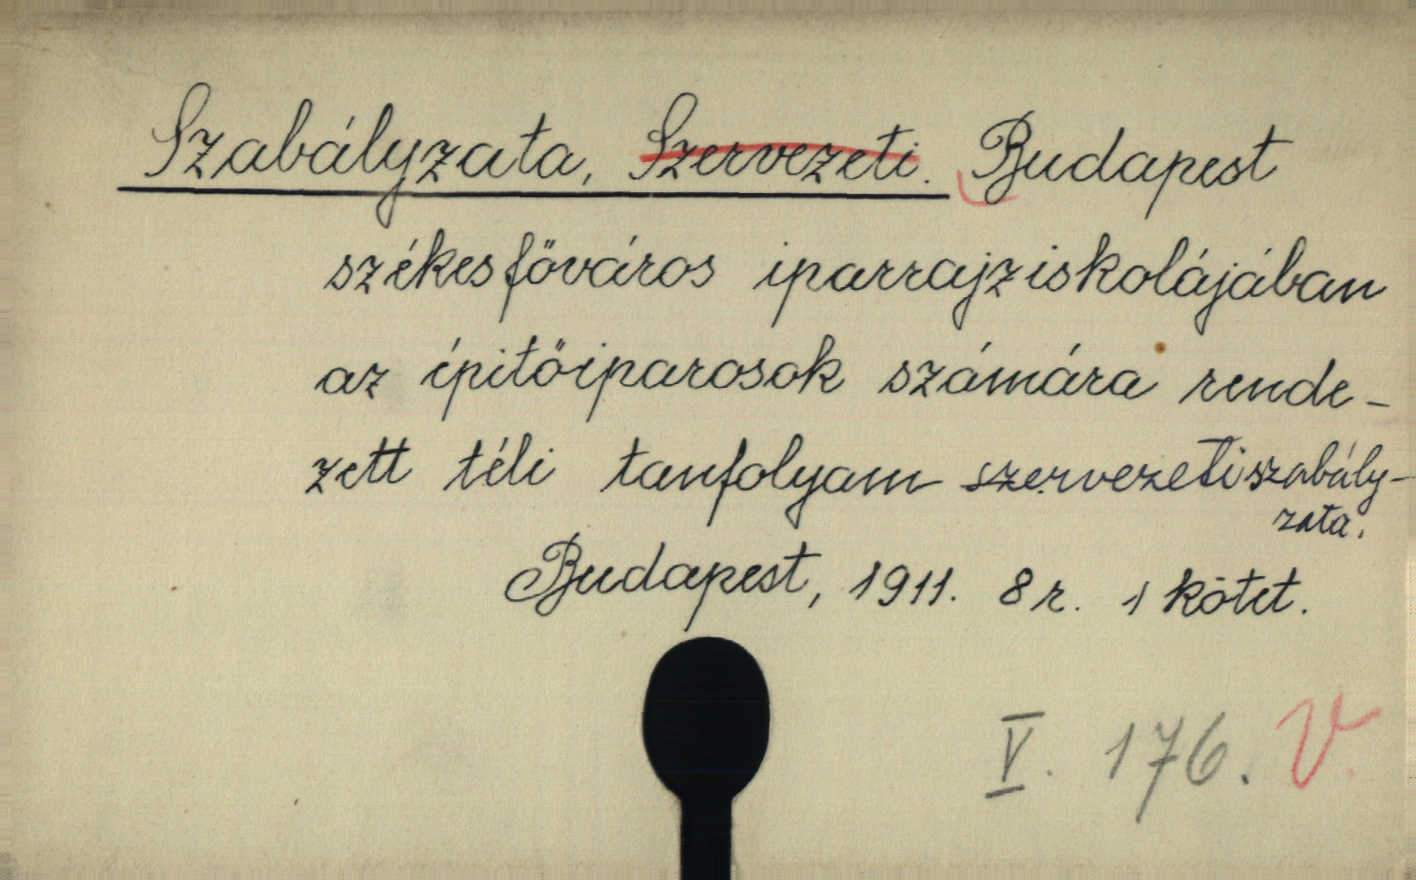 Szabályzata, Szervezeti. Budapest
székesfőváros iparrajziskolájában
az épitőiparosok számára rende-
zett téli tanfolyam szervezeti szabály-
zata.
Budapest, 1911. 8 r. 1 kötet.
V. 176. V.